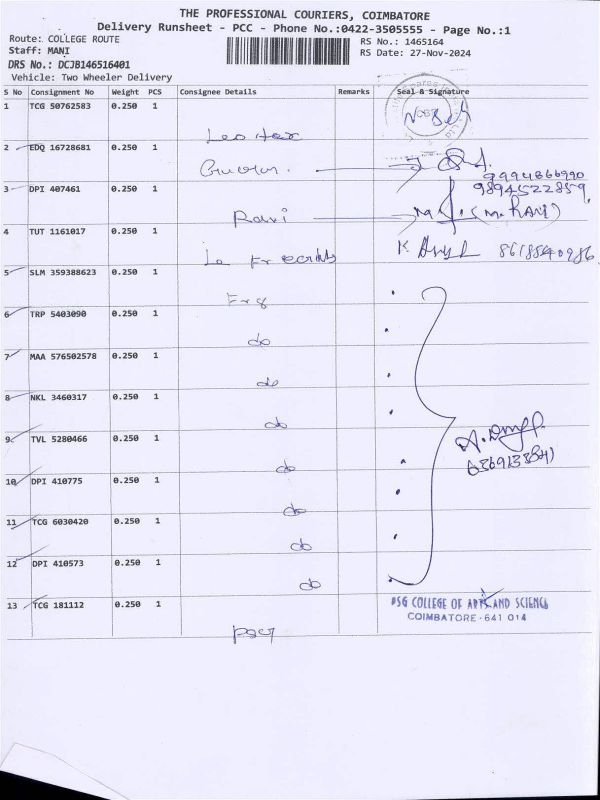 THE PROFESSIONAL COURIERS, COIMBATORE
Delivery Runsheet - PCC - Phone No.:0422-3505555 - Page No.:1
Route: COLLEGE ROUTE
RS No.: 1465164
Staff: MANI
RS Date: 27-Nov-2024
DRS No.: DCJB146516401
Vehicle: Two Wheeler Delivery
S No Consignment No Weight PCS Consignee Details Remarks Seal & Signature
1 TCG 50762583 0.250 1
2 EDQ 16728681 0.250 1
9994866990
3 DPI 407461 0.250 1
9894522859
Ravi (M. RAVI)
4 TUT 1161017 0.250 1
5 SLM 359388623 0.250 1
6 TRP 5403090 0.250 1
do
7 MAA 576502578 0.250 1
do
8 NKL 3460317 0.250 1
do
9 TVL 5280466 0.250 1
do
10 DPI 410775 0.250 1
do
11 TCG 6030420 0.250 1
do
12 DPI 410573 0.250 1
do
13 TCG 181112 0.250 1
PSG COLLEGE OF ARTS AND SCIENCE
COIMBATORE - 641 014